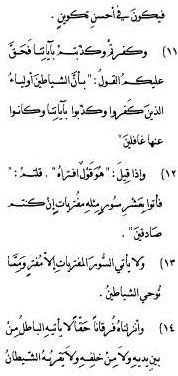 فيكون في أحسن تكوين .
(١١) وكفرتم وكذّبتم بآياتنا فحقّ
عليكم القول : " بأنّ الشياطين أولياء
الذين كفروا وكذّبوا بآياتنا وكانوا
عنها غافلين "
(١٢) وإذا قيل : " هو قول افتراه " . قلتم : "
فأتوا بعشر سور مثله مفتريات إن كنتم
صادقين "
(١٣) ولا يأتي السّور المفتريات إلاّ مفتر وممّا
توحي الشياطين
(١٤) وأنزلناه فرقاناً حقّاً لا يأتيه الباطل من
بين يديه ولا من خلفه ولا يقربه الشيطان